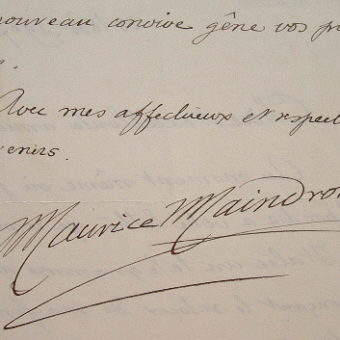 nouveau convive gêne vos pr
.
Avec mes affectueux et respect
venirs.
Maurice Maindron